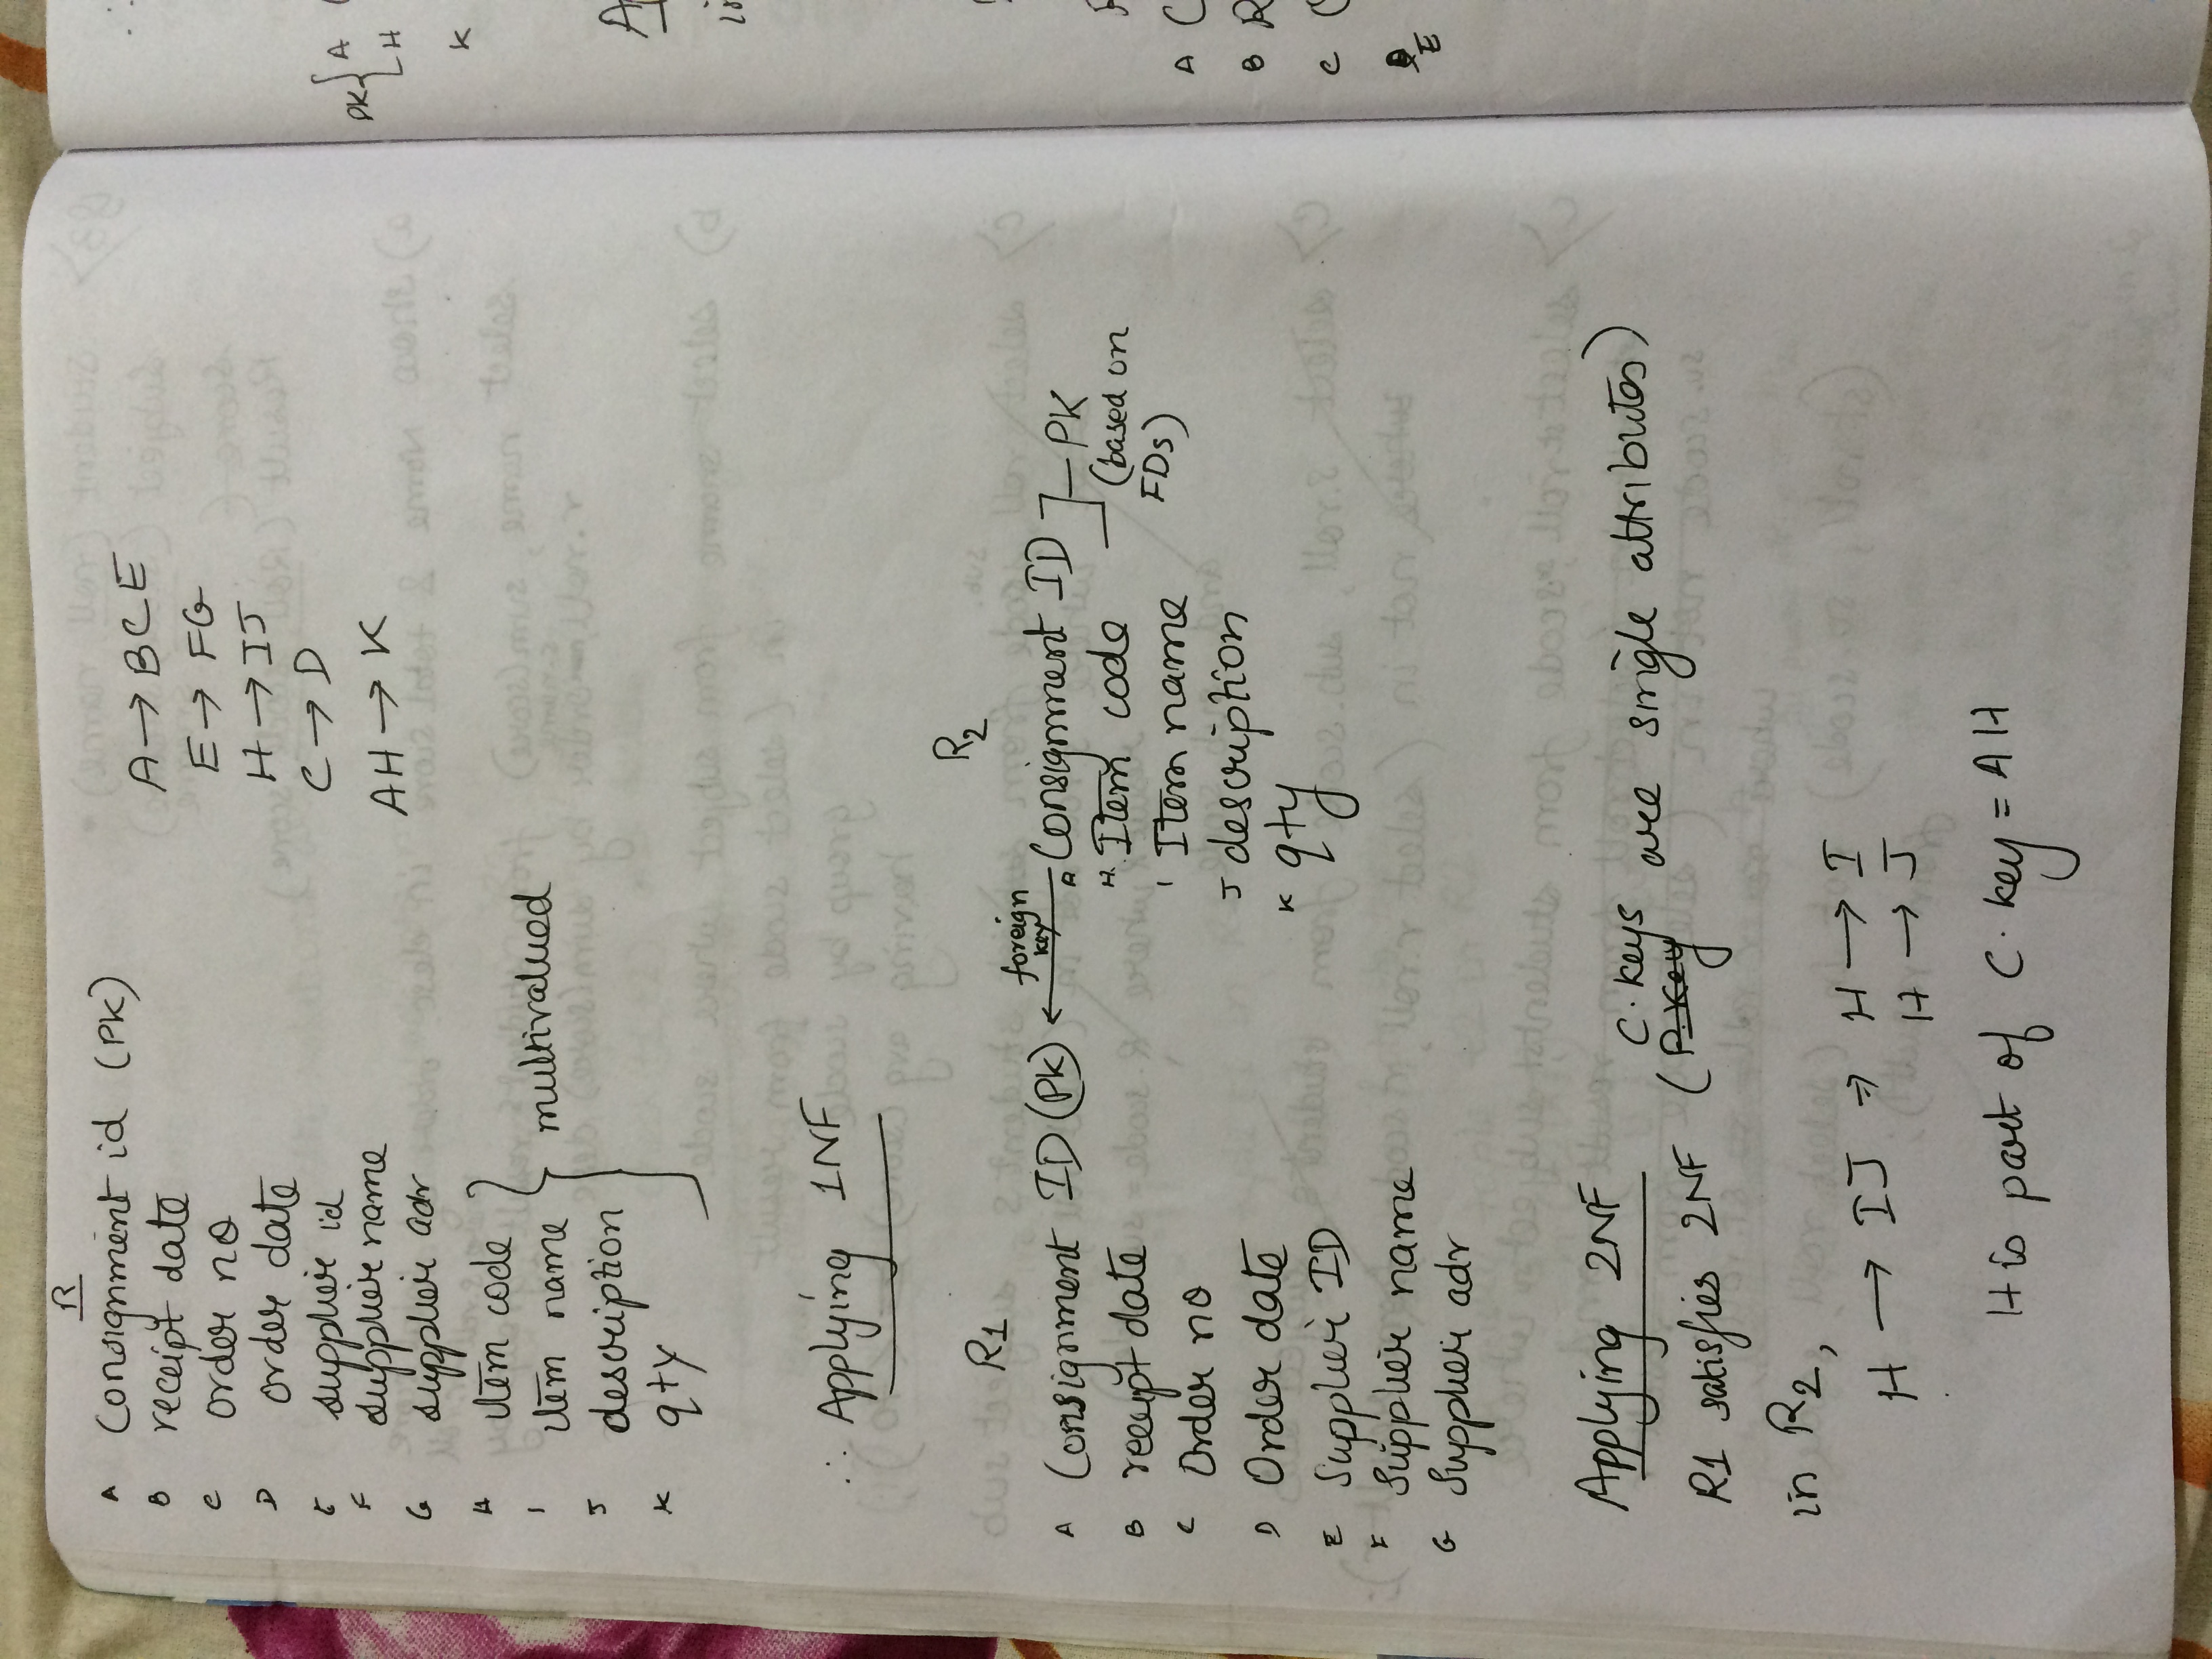 R
A Consignment id (PK)
B receipt date
C order no
D order date
E supplier id
F supplier name
G supplier adr
H Item code
I Item name
J description
K qty
multivalued
A → BCE
E → FG
H → IJ
C → D
AH → K
∴ Applying 1NF
R1
A Consignment ID (PK)
B receipt date
C Order no
D Order date
E Supplier ID
F Supplier name
G Supplier adr
foreign key
R2
A Consignment ID
H. Item code
I Item name
J description
K qty
PK
(based on
FDs)
Applying 2NF
R1 satisfies 2NF (P.Key C.keys are single attributes)
in R2,
H → IJ ⇒ H → I
H → J
H is part of C.key = AH
PK { A
H
K
A
B R
C
E